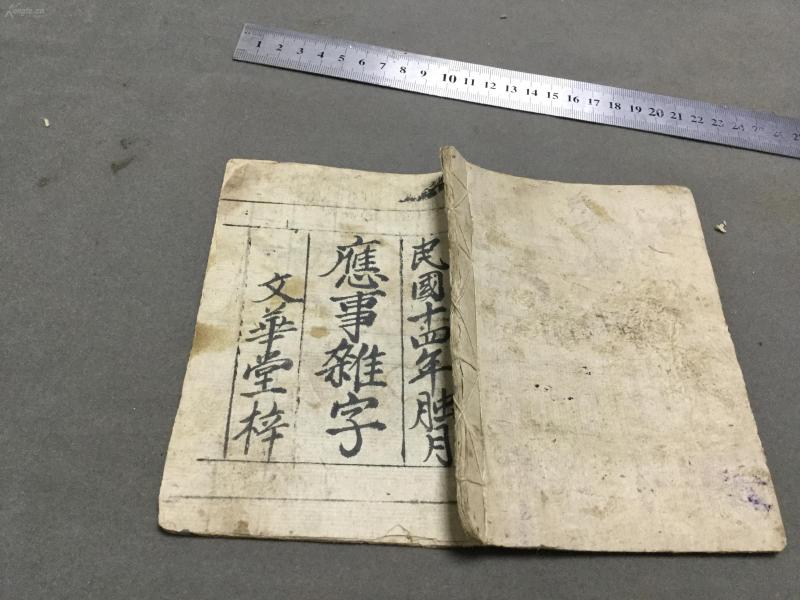 民國十四年腊月
應事雜字
文華堂梓
1 2 3 4 5 6 7 8 9 10 11 12 13 14 15 16 17 18 19 20 21 22 23 24